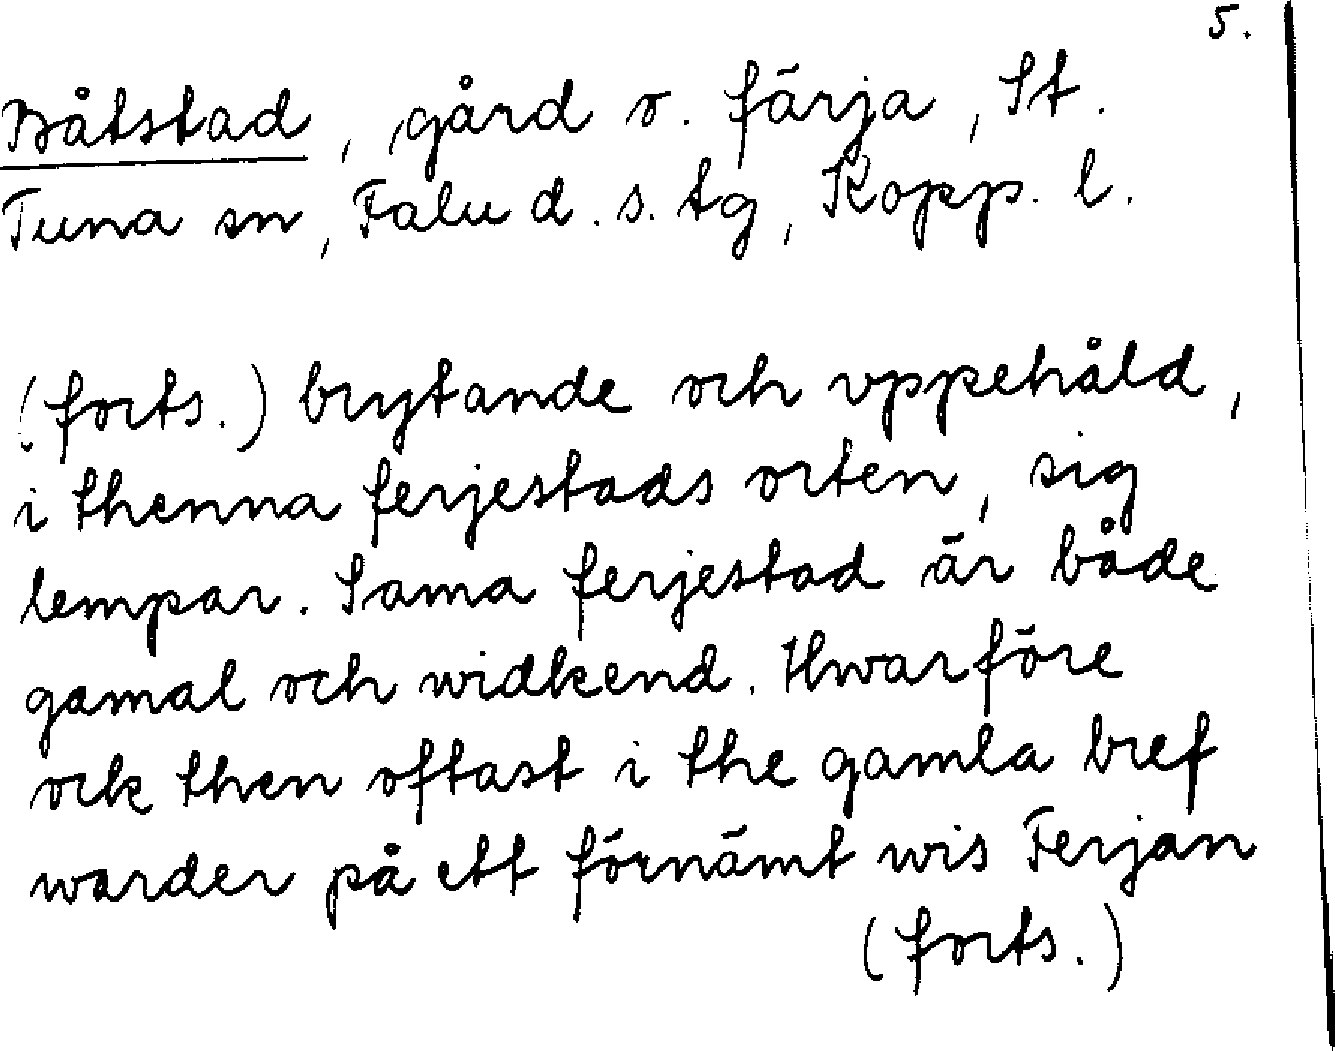 5.
Båtstad, gård o. färja, St.
Tuna sn, Falu d. s. tg, Kopp. l.
(forts.) brytande och vppehåld,
i thenna ferjestads orten, sig
lempar. Sama ferjestad är både
gamal och widkend. Hwarföre
ock then oftast i the gamla bref
warder på ett förnämt wis Ferjan
(forts.)